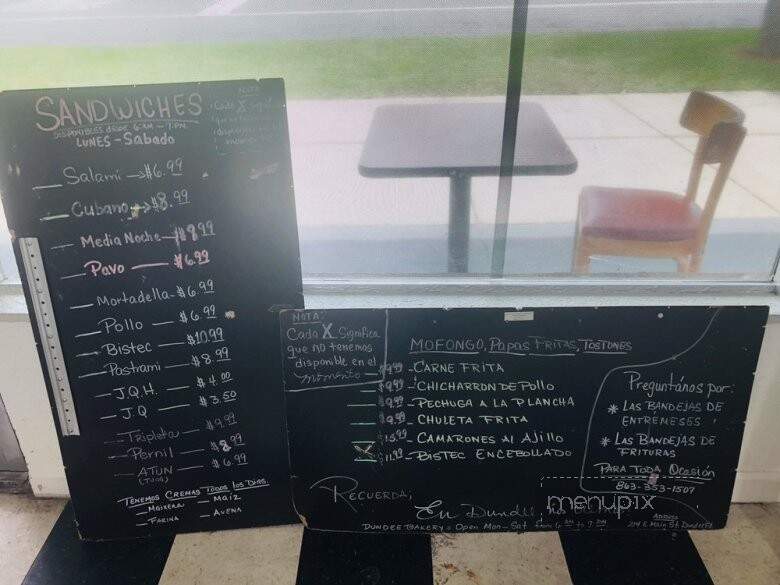 SANDWICHES
DISPONIBLES DESDE 6 AM - 7 PM
LUNES - Sábado
NOTA
Cada X
Salami → $6.99
Cubano → $8.99
Media Noche - $8.99
Pavo - $6.99
Mortadella - $6.99
Pollo - $6.99
Bistec - $10.99
Pastrami - $8.99
J.Q.H. - $4.00
J.Q - $3.50
Tripleta - $9.99
Pernil - $8.99
ATUN - $6.99
(TUNA)
TENEMOS CREMAS TODOS LOS DIAS
- MAIZENA - MAIZ
- FARINA - AVENA
NOTA:
Cada X significa
que no tenemos
disponible en el
momento
MOFONGO, Papas FRITAS, TOSTONES
$9.99 - CARNE FRITA
$9.99 - CHICHARRON DE POLLO
$9.99 - PECHUGA A LA PLANCHA
$9.99 - CHULETA FRITA
$13.99 - CAMARONES Al AJILLO
X $11.99 - BISTEC ENCEBOLLADO
Preguntános por:
* LAS BANDEJAS DE
ENTREMESES
* LAS BANDEJAS DE
FRITURAS
PARA TODA Ocasión
863-353-1507
RECUERDA;
En Dundee
menupix
DUNDEE BAKERY Open Mon - Sat from 6 AM to 7 PM
ADDRESS
214 E Main St Dundee Fl